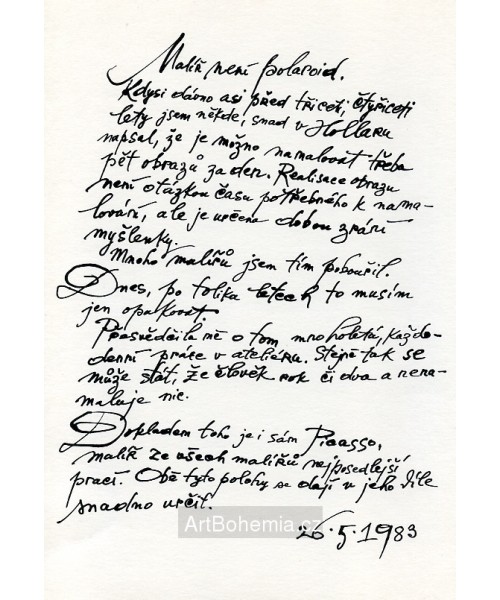 Malíř není polaroid.
Kdysi dávno asi před třiceti, čtyřiceti
lety jsem někde, snad v Hollaru
napsal, že je možno namalovat třeba
pět obrazů za den. Realisace obrazu
není otázkou času potřebného k nama-
lování, ale je určena dobou zrání
myšlenky.
Mnoho malířů jsem tím pobouřil.
Dnes, po tolika letech to musím
jen opakovat.
Přesvědčila mě o tom mnoholetá, každo-
denní práce v atelieru. Stejně tak se
může stát, že člověk rok či dva a nena-
maluje nic.
Dokladem toho je i sám Picasso,
malíř ze všech malířů nejposedlejší
prací. Obě tyto polohy se dají v jeho díle
snadno určit.
ArtBohemia.cz
26.5.1983